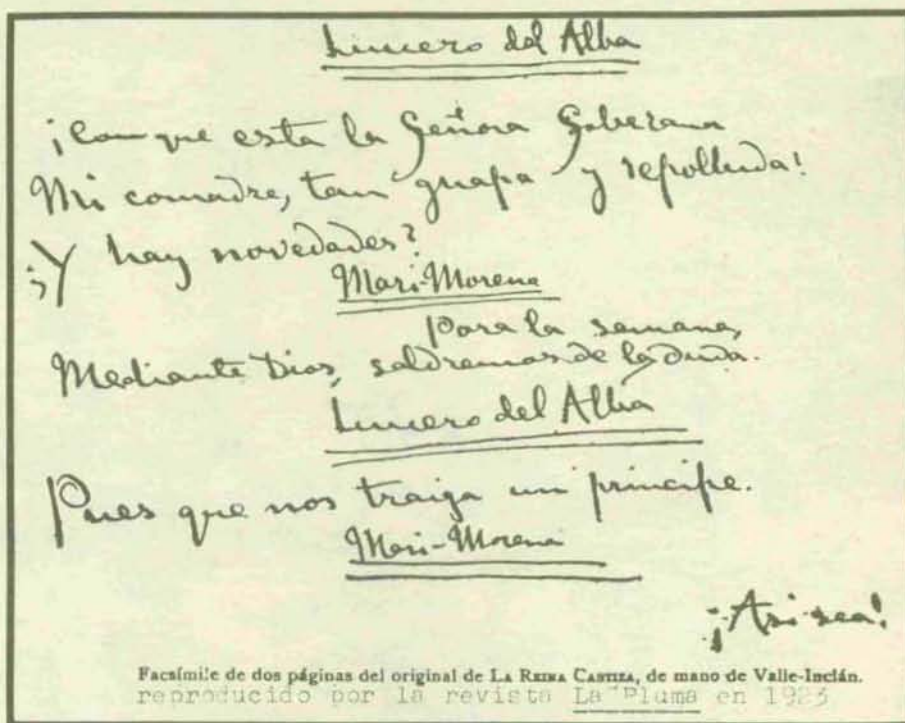 Lucero del Alba
¡Con que esta la Señora Soberana
Mi comadre, tan guapa y repolluda!
¿Y hay novedades?
Mari-Morena
Para la semana,
Mediante Dios, saldremos de la duda.
Lucero del Alba
Pues que nos traiga un principe.
Mari-Morena
¡Asi sea!
Facsímile de dos páginas del original de LA REINA CASTIZA, de mano de Valle-Inclán.
reproducido por la revista La Pluma en 1923